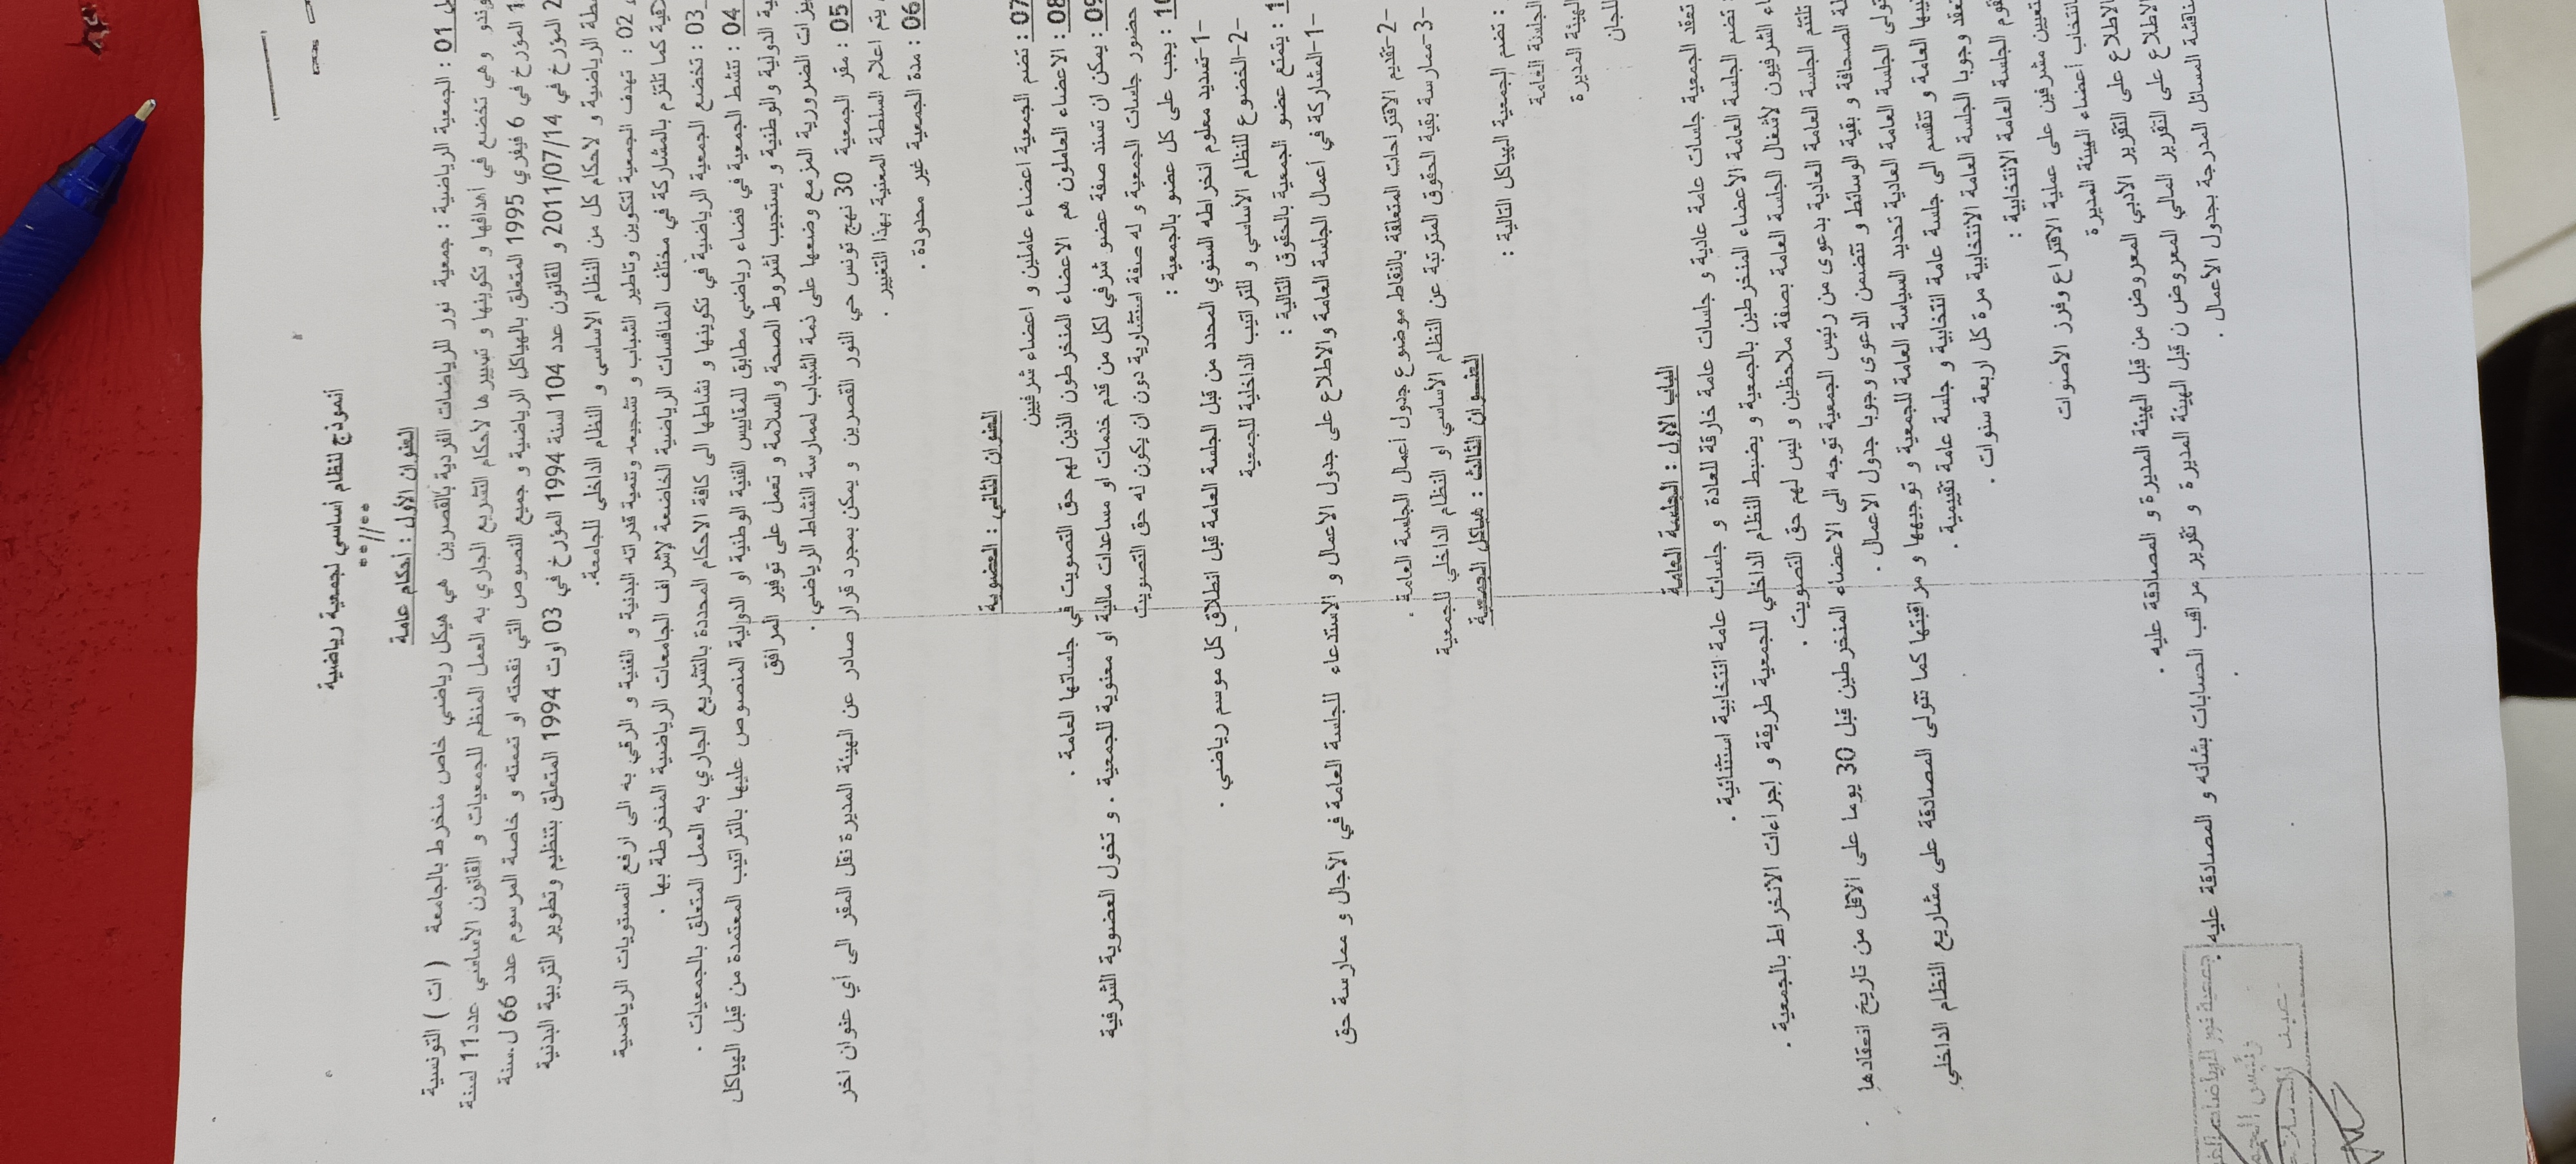 أنموذج لنظام أساسي لجمعية رياضية
°°//°°
العنوان الأول : أحكام عامة
01 : الجمعية الرياضية : جمعية نور للرياضات الفردية بالقصرين هي هيكل رياضي خاص منخرط بالجامعة ( ات ) التونسية
وهي تخضع في أهدافها و تكوينها و تسييرها لأحكام التشريع الجاري به العمل المنظم للجمعيات و القانون الأساسي عدد 11 لسنة
المؤرخ في 6 فيفري 1995 المتعلق بالهياكل الرياضية و جميع النصوص التي نقحته او تممته و خاصة المرسوم عدد 66 ل سنة
المؤرخ في 2011/07/14 و للقانون عدد 104 لسنة 1994 المؤرخ في 03 اوت 1994 المتعلق بتنظيم وتطوير التربية البدنية
الرياضية و لاحكام كل من النظام الاساسي و النظام الداخلي للجامعة.
02 : تهدف الجمعية لتكوين وتاطير الشباب و تشجيعه وتنمية قدراته البدنية و الفنية و الرقي به الى ارفع المستويات الرياضية
كما تلتزم بالمشاركة في مختلف المنافسات الرياضية الخاضعة لإشراف الجامعات الرياضية المنخرطة بها .
03 : تخضع الجمعية الرياضية في تكوينها و نشاطها الى كافة الاحكام المحددة بالتشريع الجاري به العمل المتعلق بالجمعيات .
04 : تنشط الجمعية في فضاء رياضي مطابق للمقاييس الفنية الوطنية او الدولية المنصوص عليها بالتراتيب المعتمدة من قبل الهياكل
الدولية والوطنية و يستجيب لشروط الصحة والسلامة و تعمل على توفير المرافق
الضرورية المزمع وضعها على ذمة الشباب لممارسة النشاط الرياضي .
05 : مقر الجمعية 30 نهج تونس حي النور القصرين و يمكن بمجرد قرار صادر عن الهيئة المديرة نقل المقر الى أي عنوان اخر
يتم اعلام السلطة المعنية بهذا التغيير .
06 : مدة الجمعية غير محدودة .
العنوان الثاني : العضوية
07 : تضم الجمعية اعضاء عاملين و اعضاء شرفيين
08 : الاعضاء العاملون هم الاعضاء المنخرطون الذين لهم حق التصويت في جلساتها العامة .
09 : يمكن ان تسند صفة عضو شرفي لكل من قدم خدمات او مساعدات مالية او معنوية للجمعية . و تخول العضوية الشرفية
حضور جلسات الجمعية و له صفة استشارية دون ان يكون له حق التصويت
10 : يجب على كل عضو بالجمعية :
1-تسديد معلوم انخراطه السنوي المحدد من قبل الجلسة العامة قبل انطلاق كل موسم رياضي .
2-الخضوع للنظام الأساسي و للتراتيب الداخلية للجمعية
: يتمتع عضو الجمعية بالحقوق التالية :
1-المشاركة في أعمال الجلسة العامة والاطلاع على جدول الأعمال و الاستدعاء للجلسة العامة في الآجال و ممارسة حق
2-تقديم الاقتراحات المتعلقة بالنقاط موضوع جدول أعمال الجلسة العامة .
3-ممارسة بقية الحقوق المترتبة عن النظام الأساسي او النظام الداخلي للجمعية
العنوان الثالث : هياكل الجمعية
: تضم الجمعية الهياكل التالية :
الجلسة العامة
الهيئة المديرة
اللجان
الباب الاول : الجلسة العامة
تعقد الجمعية جلسات عامة عادية و جلسات عامة خارقة للعادة و جلسات عامة انتخابية استثنائية .
تضم الجلسة العامة الأعضاء المنخرطين بالجمعية و يضبط النظام الداخلي للجمعية طريقة و إجراءات الانخراط بالجمعية .
الشرفيون لأشغال الجلسة العامة بصفة ملاحظين و ليس لهم حق التصويت .
تلتئم الجلسة العامة العادية بدعوى من رئيس الجمعية توجه الى الاعضاء المنخرطين قبل 30 يوما على الاقل من تاريخ انعقادها
الصحافة و بقية الوسائط و تتضمن الدعوى وجوبا جدول الاعمال .
تتولى الجلسة العامة العادية تحديد السياسة العامة للجمعية و توجيهها و مراقبتها كما تتولى المصادقة على مشاريع النظام الداخلي
العامة و تنقسم الى جلسة عامة انتخابية و جلسة عامة تقييمية .
تعقد وجوبا الجلسة العامة الانتخابية مرة كل اربعة سنوات .
تقوم الجلسة العامة الانتخابية :
بتعيين مشرفين على عملية الاقتراع وفرز الأصوات
بانتخاب أعضاء الهيئة المديرة
الاطلاع على التقرير الأدبي المعروض من قبل الهيئة المديرة و المصادقة عليه .
الاطلاع على التقرير المالي المعروض ن قبل الهيئة المديرة و تقرير مراقب الحسابات بشانه و المصادقة عليه .
مناقشة المسائل المدرجة بجدول الأعمال .
جمعية نور للرياضات